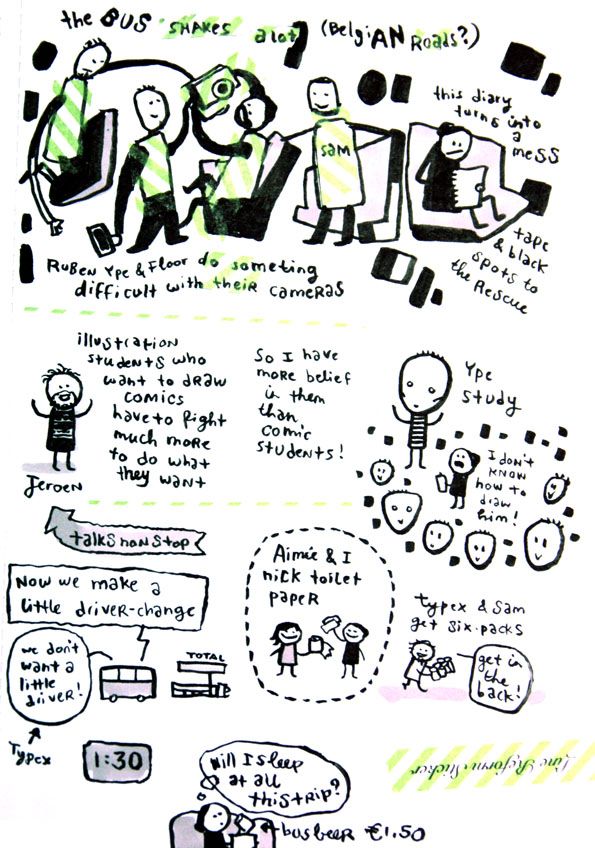 the BUS SHAKES a lot (BelgiAN Roads?)
this diary
turns into
a
mess
SAM
tape
& black
spots to
the Rescue
RuBen Ype & Floor do someting
difficult with their cameras
illustration
students who
want to draw
comics
have to fight
much more
to do what
they want
So I have
more belief
in them
than
comic
students!
Ype
study
I don't
know
how to
draw
him!
Jeroen
talks nonstop
Aimée & I
nick toilet
paper
Now we make a
little driver-change
we don't
want a
little
driver!
TOTAL
typex & Sam
get six-packs
get in
the
back!
Typex
1:30
Will I sleep
at all
this trip?
bus beer €1.50
Time Reform Sticker